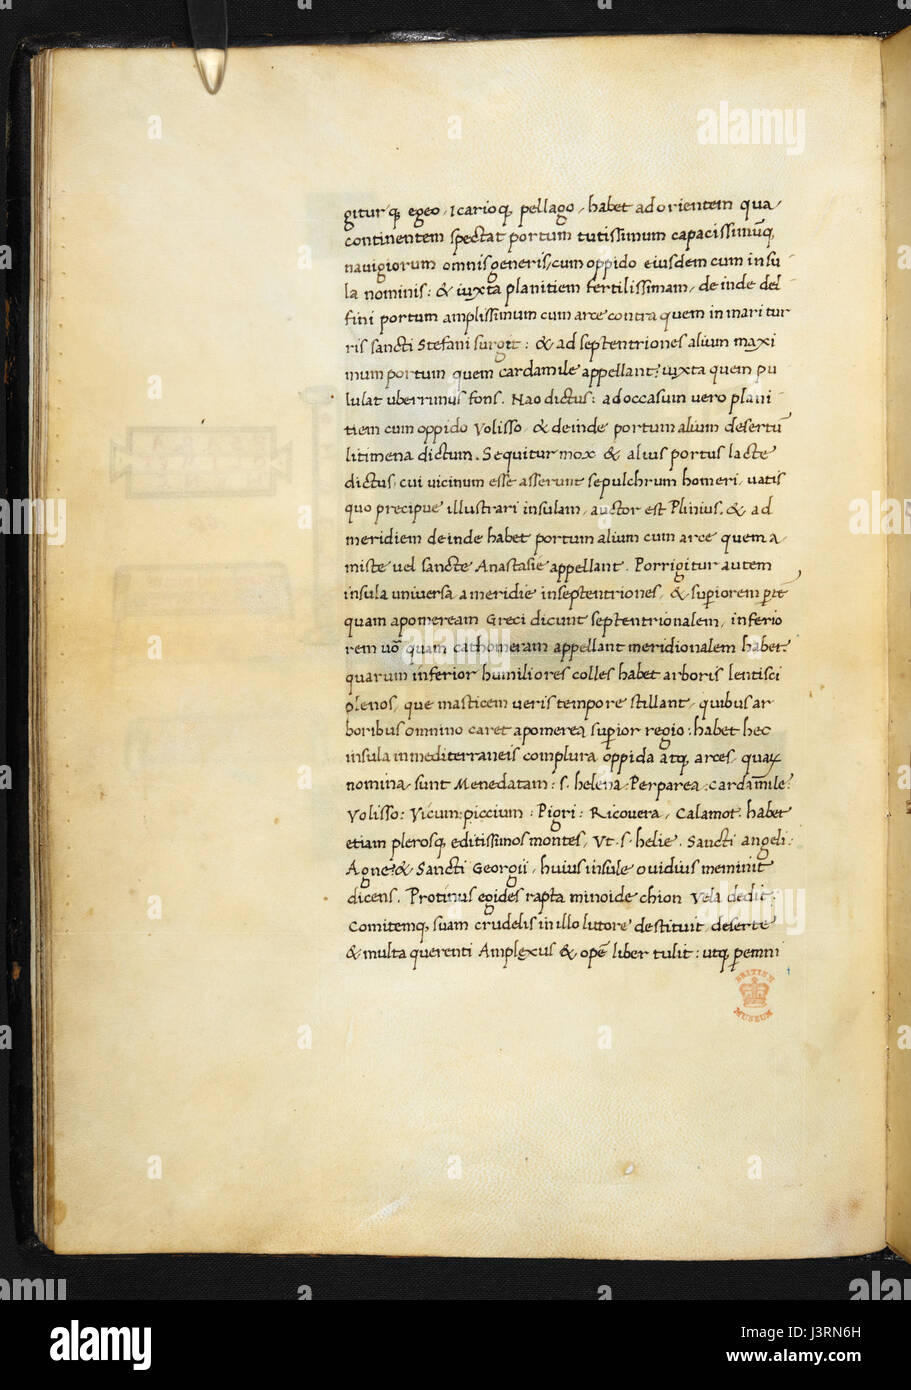 giturq, egeo, Icarioq, pellago, habet ad orientem qua
continentem spectat portum tutissimum capacissimūq,
navigiorum omnis generis, cum oppido eiusdem cum insu
la nominis: & iuxta planitiem fertilissimam, deinde del
fini portum amplissimum cum arce contra quem in mari tur
ris sancti Stefani surgit: & ad septentriones alium maxi
mum portum quem cardamile appellant: iuxta quem pu
lulat uberrimus fons. Nao dictus: ad occasum vero plani
tiem cum oppido Volisso, & deinde portum alium desertū
litimena dictum. Sequitur mox & alius portus lacte
dictus, cui vicinum esse asserunt sepulchrum homeri, vatis
quo precipue illustrari insulam, auctor est Plinius. & ad
meridiem deinde habet portum alium cum arce quem a
miste vel sancte Anastasie appellant. Porrigitur autem
insula universa a meridie in septentriones, & superiorem ptē
quam apomeream Greci dicunt septentrionalem, inferio
rem vō quam cathomeram appellant meridionalem habet:
quarum inferior humiliores colles habet arboris lentisci
plenos, que masticem veris tempore stillant, quibus ar
boribus omnino caret apomerea superior regio: habet hec
insula in mediterraneis complura oppida atq, arces, quaꝝ
nomina, sunt Menedatam: s. helena: Perparea: Cardamile:
Volisso: Vicum: piccium: Pigri: Ricovera, Calamot. habet
etiam plerosq, editissimos montes, Vt. s. helie. Sancti angeli:
Agne: & Sancti Georgii, huius insule ovidius meminit
dicens. Protinus egides rapta minoide chion Vela dedit:
Comitemq, suam crudelis in illo lutore destituit, deserte
& multa querenti Amplexus & opē liber tulit: utq, pemni
BRITISH
MUSEUM
alamy
J3RN6H
alamy
Image ID: J3RN6H
www.alamy.com